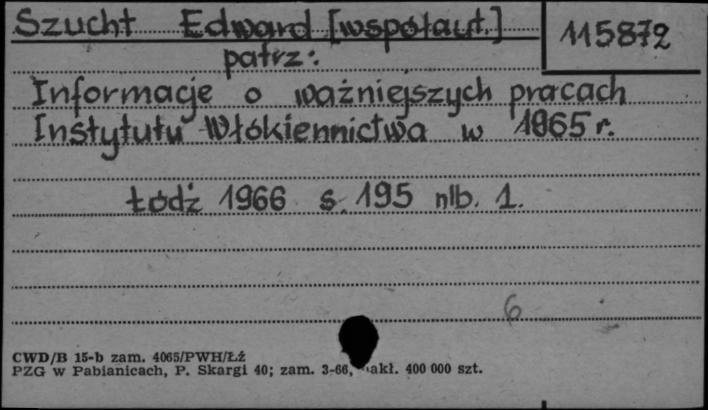 Szucht Edward [współaut.]
115872
patrz:
Informacje o ważniejszych pracach
Instytutu Włókiennictwa w 1965 r.
Łódź 1966 s. 195 nlb. 1.
6
CWD/B 15-b zam. 4065/PWH/Łź
PZG w Pabianicach, P. Skargi 40; zam. 3-66, nakł. 400 000 szt.